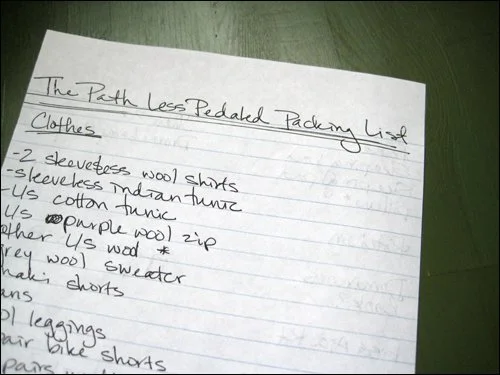 The Path Less Pedaled Packing List
Clothes
-2 sleeveless wool shirts
-sleeveless indian tunic
-L/s cotton tunic
L/s purple wool zip
other L/s wool *
grey wool sweater
khaki shorts
leggings
bike shorts
pairs